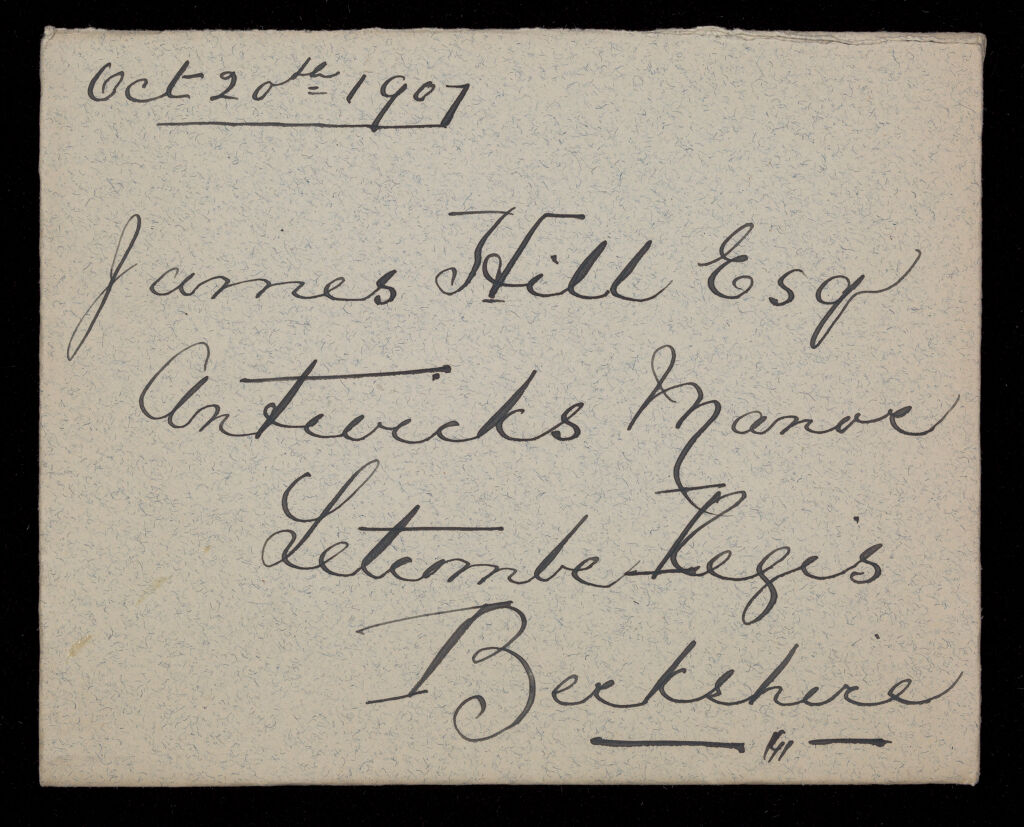 Oct 20th 1907
James Hill Esq
Antwicks Manor
Letcombe Regis
Berkshire